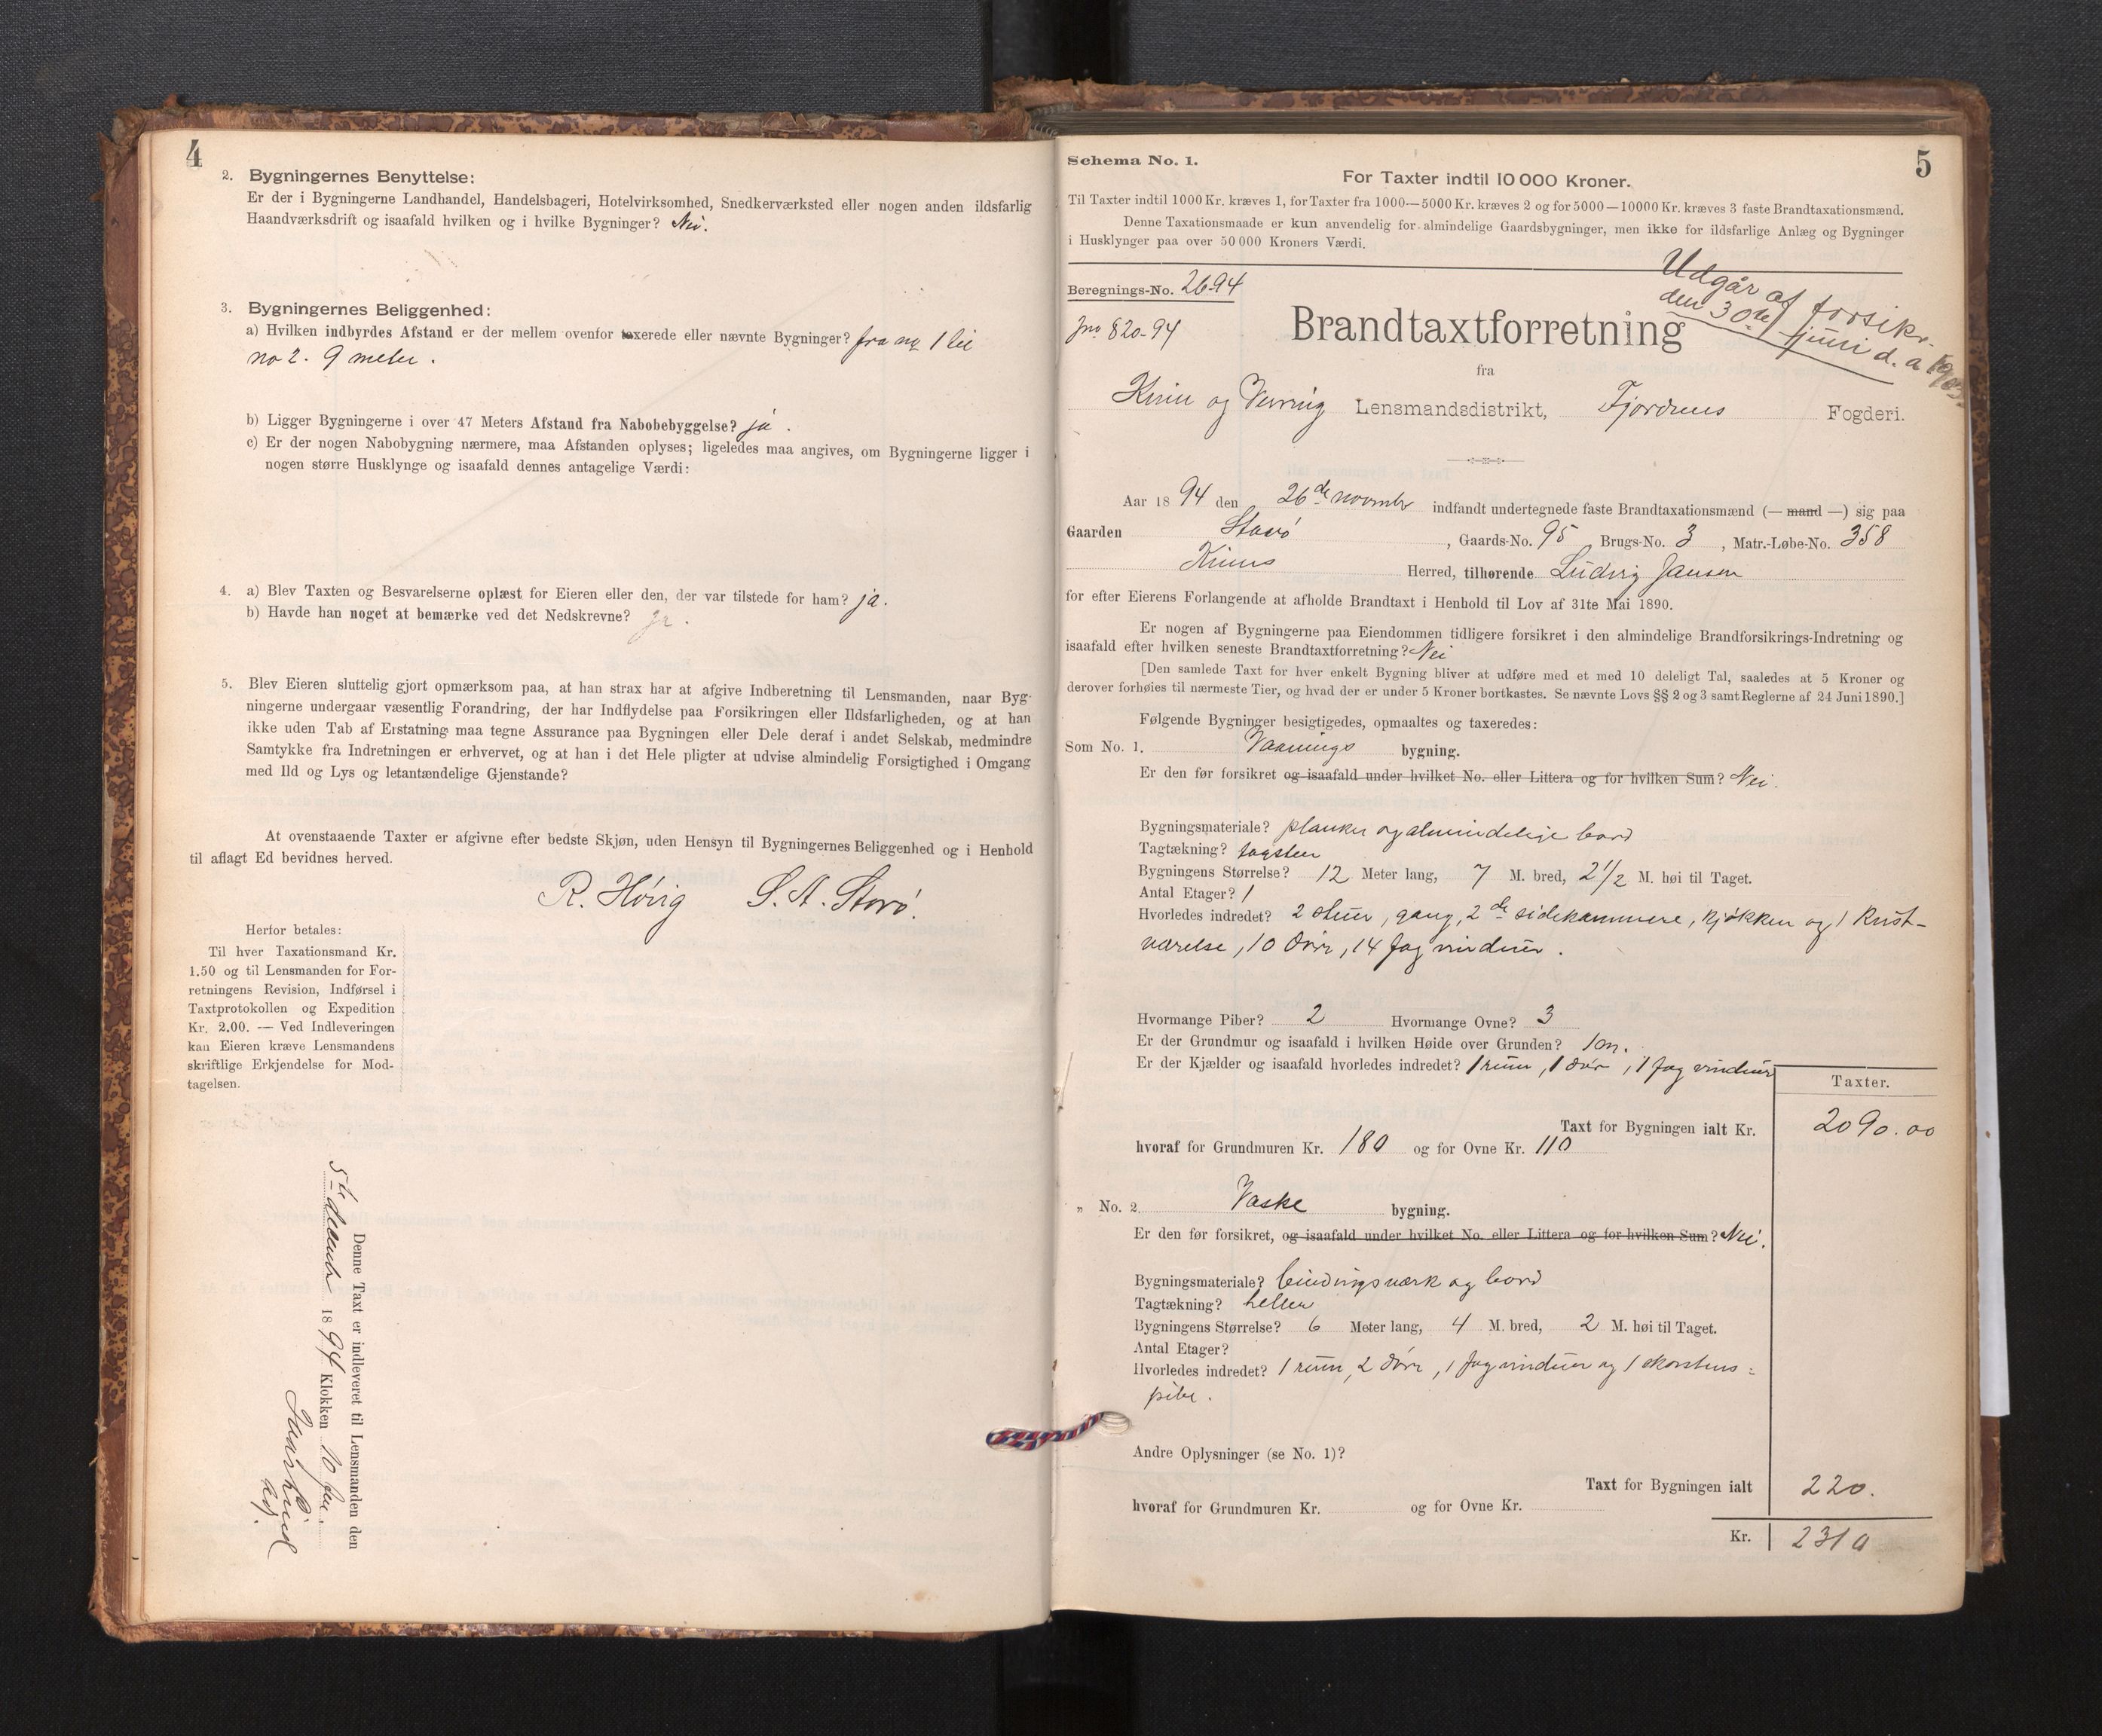 4
2. Bygningernes Benyttelse:
Er der i Bygningerne Landhandel, Handelsbageri, Hotelvirksomhed, Snedkerværksted eller nogen anden ildsfarlig
Haandværksdrift og isaafald hvilken og i hvilke Bygninger? Nei.
3. Bygningernes Beliggenhed:
a) Hvilken indbyrdes Afstand er der mellem ovenfor taxerede eller nævnte Bygninger? fra no 1 til
no 2. 9 meter.
b) Ligger Bygningerne i over 47 Meters Afstand fra Nabobebyggelse? ja.
c) Er der nogen Nabobygning nærmere, maa Afstanden oplyses; ligeledes maa angives, om Bygningerne ligger i
nogen større Husklynge og isaafald dennes antagelige Værdi:
4. a) Blev Taxten og Besvarelserne oplæst for Eieren eller den, der var tilstede for ham? ja.
b) Havde han noget at bemærke ved det Nedskrevne?
5. Blev Eieren sluttelig gjort opmærksom paa, at han strax har at afgive Indberetning til Lensmanden, naar Byg-
ningerne undergaar væsentlig Forandring, der har Indflydelse paa Forsikringen eller Ildsfarligheden, og at han
ikke uden Tab af Erstatning maa tegne Assurance paa Bygningen eller Dele deraf i andet Selskab, medmindre
Samtykke fra Indretningen er erhvervet, og at han i det Hele pligter at udvise almindelig Forsigtighed i Omgang
med Ild og Lys og letantændelige Gjenstande?
At ovenstaaende Taxter er afgivne efter bedste Skjøn, uden Hensyn til Bygningernes Beliggenhed og i Henhold
til aflagt Ed bevidnes herved.
R. Høvig S. A. Storø.
Herfor betales:
Til hver Taxationsmand Kr.
1.50 og til Lensmanden for For-
retningens Revision, Indførsel i
Taxtprotokollen og Expedition
Kr. 2.00. — Ved Indleveringen
kan Eieren kræve Lensmandens
skriftlige Erkjendelse for Mod-
tagelsen.
Denne Taxt er indleveret til Lensmanden den
5te decembr 1894 Klokken 10 fm.
5
Schema No. 1.
For Taxter indtil 10 000 Kroner.
Til Taxter indtil 1000 Kr. kræves 1, for Taxter fra 1000—5000 Kr. kræves 2 og for 5000—10000 Kr. kræves 3 faste Brandtaxationsmænd.
Denne Taxationsmaade er kun anvendelig for almindelige Gaardsbygninger, men ikke for ildsfarlige Anlæg og Bygninger
i Husklynger paa over 50 000 Kroners Værdi.
Udgår af forsikr.
den 30te juni d. a.
Beregnings-No. 26-94
Jno 820-94
Brandtaxtforretning
fra
Kinn og Vevring Lensmandsdistrikt, Fjordenes Fogderi.
Aar 1894 den 26de novembr indfandt undertegnede faste Brandtaxationsmænd (— mand —) sig paa
Gaarden Storø, Gaards-No. 95 Brugs-No. 3, Matr.-Løbe-No. 358
Kinns Herred, tilhørende Ludvig Jansen
for efter Eierens Forlangende at afholde Brandtaxt i Henhold til Lov af 31te Mai 1890.
Er nogen af Bygningerne paa Eiendommen tidligere forsikret i den almindelige Brandforsikrings-Indretning og
isaafald efter hvilken seneste Brandtaxtforretning? Nei
[Den samlede Taxt for hver enkelt Bygning bliver at udføre med et med 10 deleligt Tal, saaledes at 5 Kroner og
derover forhøies til nærmeste Tier, og hvad der er under 5 Kroner bortkastes. Se nævnte Lovs §§ 2 og 3 samt Reglerne af 24 Juni 1890.]
Følgende Bygninger besigtigedes, opmaaltes og taxeredes:
Som No. 1. Vaanings bygning.
Er den før forsikret og isaafald under hvilket No. eller Littera og for hvilken Sum? Nei.
Bygningsmateriale? planker og almindelige bord
Tagtækning? tagsten
Bygningens Størrelse? 12 Meter lang, 7 M. bred, 2 1/2 M. høi til Taget.
Antal Etager? 1
Hvorledes indredet? 2 stuer, gang, 2de sidekammere, kjøkken og 1 kvist-
værelse, 10 døre, 14 fag vinduer.
Hvormange Piber? 2 Hvormange Ovne? 3
Er der Grundmur og isaafald i hvilken Høide over Grunden? 1 m.
Er der Kjælder og isaafald hvorledes indredet? 1 rum, 1 dør, 1 fag vinduer
Taxter.
Taxt for Bygningen ialt Kr. 2090.00
hvoraf for Grundmuren Kr. 180 og for Ovne Kr. 110
„ No. 2 Vaske bygning.
Er den før forsikret, og isaafald under hvilket No. eller Littera og for hvilken Sum? Nei.
Bygningsmateriale? bindingsværk og bord
Tagtækning? heller
Bygningens Størrelse? 6 Meter lang, 4 M. bred, 2 M. høi til Taget.
Antal Etager?
Hvorledes indredet? 1 rum, 2 døre, 1 fag vinduer og 1 skorstens=
pibe.
Andre Oplysninger (se No. 1)?
Taxt for Bygningen ialt 220.
hvoraf for Grundmuren Kr. og for Ovne Kr.
Kr. 2310